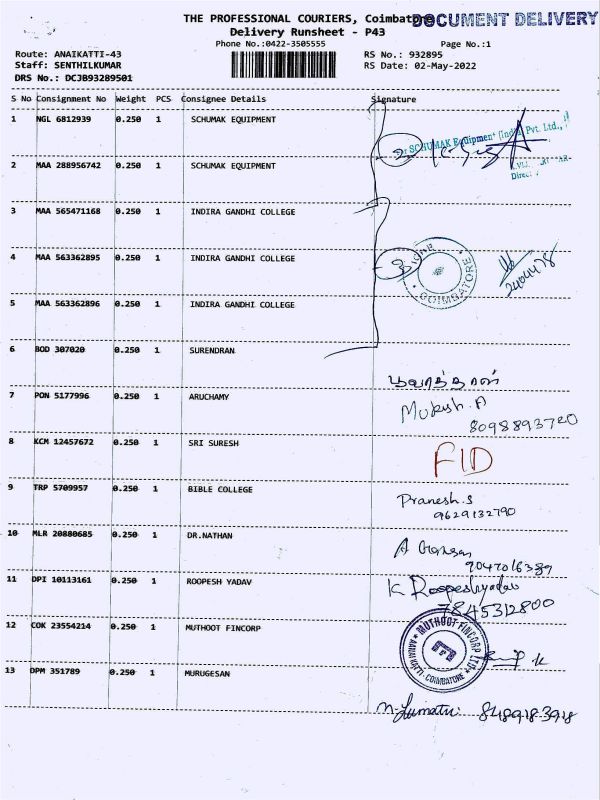 THE PROFESSIONAL COURIERS, Coimbatore
DOCUMENT DELIVERY
Delivery Runsheet - P43
Phone No.:0422-3505555
Page No.:1
Route: ANAIKATTI-43
RS No.: 932895
Staff: SENTHILKUMAR
RS Date: 02-May-2022
DRS No.: DCJB93289501
S No Consignment No Weight PCS Consignee Details Signature
1 NGL 6812939 0.250 1 SCHUMAK EQUIPMENT
For SCHUMAK Equipment (India) Pvt. Ltd.,
2 MAA 288956742 0.250 1 SCHUMAK EQUIPMENT
3 MAA 565471168 0.250 1 INDIRA GANDHI COLLEGE
4 MAA 563362895 0.250 1 INDIRA GANDHI COLLEGE
COIMBATORE
2404478
5 MAA 563362896 0.250 1 INDIRA GANDHI COLLEGE
6 BOD 307020 0.250 1 SURENDRAN
7 PON 5177996 0.250 1 ARUCHAMY
Mukesh. A
8098893720
8 KCM 12457672 0.250 1 SRI SURESH
FID
9 TRP 5709957 0.250 1 BIBLE COLLEGE
Pranesh.s
9629132790
10 MLR 20880685 0.250 1 DR.NATHAN
9047016389
11 DPI 10113161 0.250 1 ROOPESH YADAV
K Roopeshyadav
7845312800
12 COK 23554214 0.250 1 MUTHOOT FINCORP
MUTHOOT FINCORP LTD
ANAIKATTI - COIMBATORE
13 DPM 351789 0.250 1 MURUGESAN
8489183918